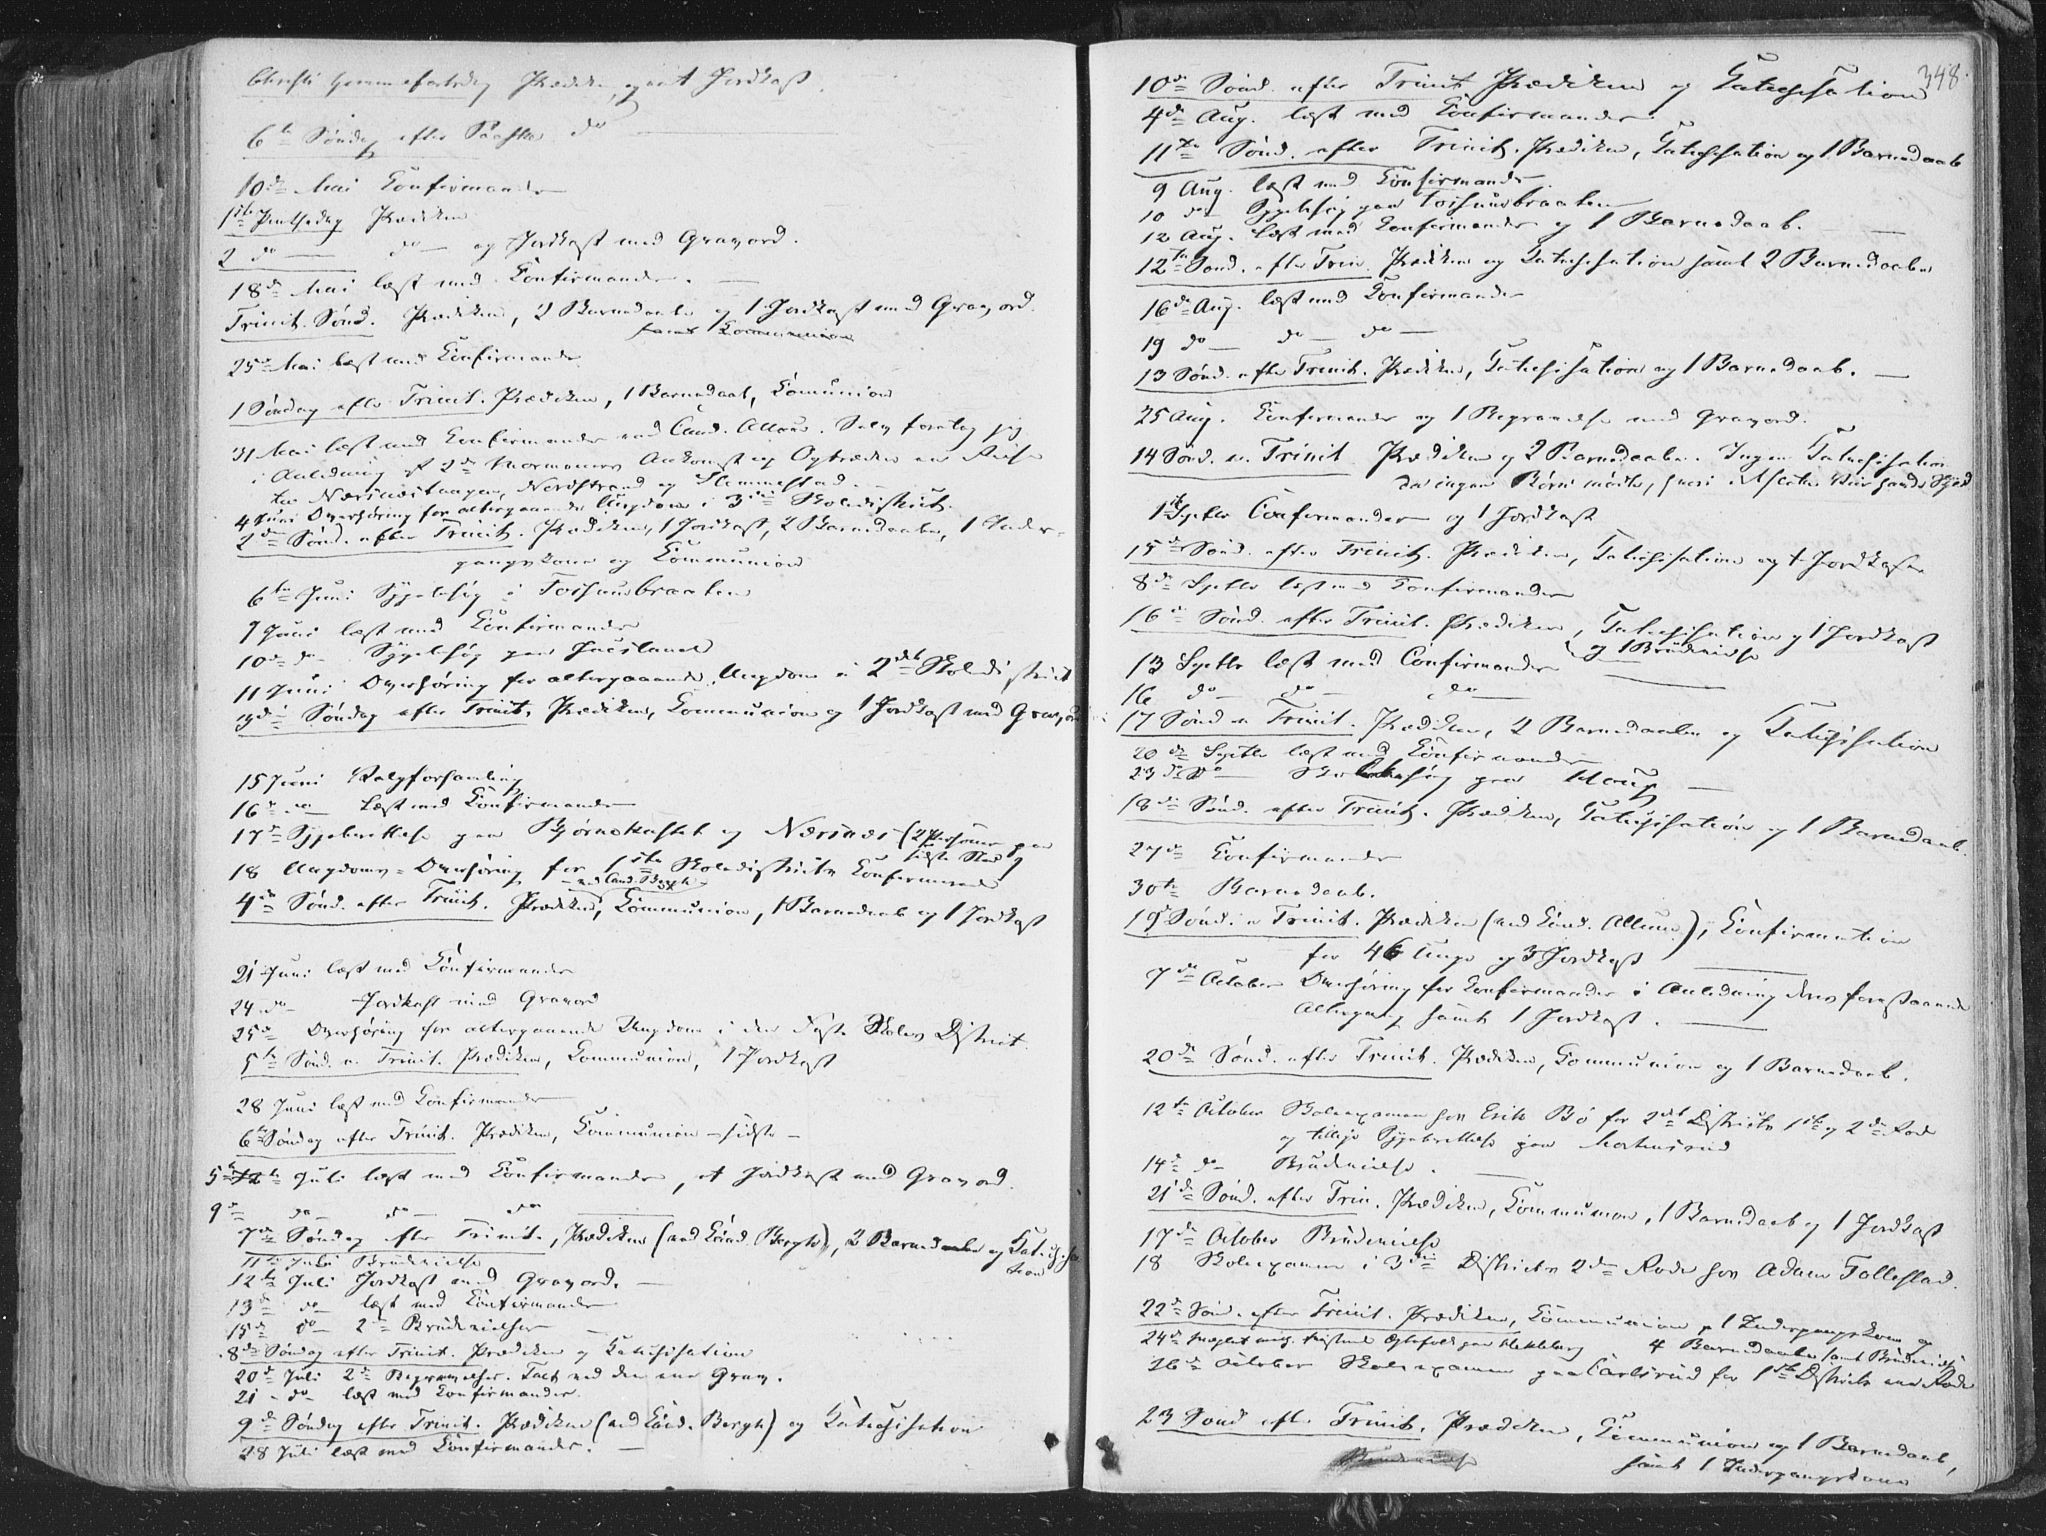 Christi Himmelfartsdag Prædiken, et Jordkast.
6te Søndag efter Paaske do
10de Mai Confirmander
1ste Pintsedag Prædiken
2 do — do — og Jordkast med Gravord.
18de Mai læst med Confirmander.
Trinit. Sønd. Prædiken, 2 Barnedaabe og 1 Jordkast med Gravord.
samt Communion
25de Mai læst med Confirmander
1 Søndag efter Trinit. Prædiken, 1 Barnedaab, Communion
31 Mai læst med Confirmander ved Cand. Allum. Selv foretog jeg
i Anledning af 2de Mormoners Ankomst og Optræden en Reise
til Næsnæstangen, Nordstrand og Slemmestad.
4 Juni Overhøring for altergaaende Ungdom i 3die Skoledistrict.
2den Sønd. efter Trinit. Prædiken, 1 Jordkast, 2 Barnedaabe, 1 Inder-
gangskone og Communion
6te Juni Sygebesøg i Torhuusbraaten
7 Juni læst med Confirmander
10de do — Sygebesøg paa
11 Juni Overhøring for altergaaende Ungdom i 2det Skoledistrict
3die Søndag efter Trinit. Prædiken, Communion og 1 Jordkast med Gravord
15 Juni Valgforsamling
16de do — læst med Confirmander
17de Sygeberettelse paa Bjørnekastet og Næsnæs (2 Personer paa
sidste Sted)
18 Ungdoms-Overhøring for 1ste Skoledistricts Confirmerede
— ved Cand. Bergh —
4de Sønd. efter Trinit. Prædiken, Communion, 1 Barnedaab og 1 Jordkast
21 Juni læst med Confirmander
24 do — Jordkast med Gravord
25de Overhøring for altergaaende Ungdom i den faste Skoles District
5te Sønd. e. Trinit. Prædiken, Communion, 1 Jordkast
28 Juni læst med Confirmander
6te Søndag efter Trinit. Prædiken, Communion — sidste —
5te Juli læst med Confirmander, et Jordkast med Gravord.
9de do — do — do
7de Søndag efter Trinit., Prædiken (ved Cand. Bergh), 2 Barnedaabe og Catechisa-
tion
11te Juli Brudevielse
12te Juli Jordkast med Gravord. —
13de do — læst med Confirmander
15de do — 2de Brudevielser —
8de Søndag efter Trinit. Prædiken og Catechisation
20de Juli 2de Begravelser. Talt ved den ene Grav.
21 — do — læst med Confirmander.
9de Søndag efter Trinit. Prædiken (ved Cand. Bergh) og Catechisation
28 Juli læst med Confirmander. —
348.
10de Sønd. efter Trinit. Prædiken og Catechisation
4de Aug. læst med Confirmander.
11te Sønd. efter Trinit. Prædiken, Catechisation og 1 Barnedaab
9 Aug. læst med Confirmander.
10 do — Sygebesøg paa Torhuusbraaten
12 Aug. læst med Confirmander og 1 Barnedaab. —
12te Sønd. efter Trin. Prædiken og Catechisation samt 2 Barnedaabe
16de Aug. læst med Confirmander
19 do — do — do —
13 Sønd. efter Trinit. Prædiken, Catechisation og 1 Barnedaab. —
25 Aug. Confirmander og 1 Begravelse med Gravord.
14 Sønd. e. Trinit. Prædiken og 2 Barnedaabe. Ingen Catechisation
da ingen Børn mødte,
1ste Septbr Confirmander og 1 Jordkast
15de Sønd. efter Trinit. Prædiken, Catechisation og 1 Jordkast
8de Septbr læst med Confirmander
16de Sønd. efter Trinit. Prædiken, Catechisation og 1 Jordkast
og 1 Brudevielse
13 Septbr læst med Confirmander
16 do — do — do —
17 Sønd. e. Trinit. Prædiken, 2 Barnedaabe og Catechisation
20de Septbr læst med Confirmander
23de do — paa Houg —
18de Sønd. efter Trinit. Prædiken, Catechisation og 1 Barnedaab.
27de Confirmander
30te Barnedaab.
19 Sønd. e. Trinit. Prædiken (ved Cand. Allum), Confirmation
for 46 Unge og 3 Jordkast
7de October Overhøring for Confirmander i Anledning deres forestaaende
Altergang samt 1 Jordkast. —
20de Sønd. efter Trinit. Prædiken, Communion og 1 Barnedaab.
12te October Skoleexamen hos Erik Bø for 2det Districts 1ste og 2den Rode
og tillige Sygeberettelse paa
14de do — Brudevielse. —
21de Sønd. efter Trin. Prædiken, Communion, 1 Barnedaab og 1 Jordkast
17de October Brudevielse
18 Skoleexamen i 3die Districts 2den Rode hos Adam Follestad.
22de Sønd. efter Trinit. Prædiken, Communion, 1 Indergangskone og
4 Barnedaabe samt Brudevielse
24de Mæglet mlg. Ægtefolk paa Hekleberg
26de October Skoleexamen paa Carlsrud for 1ste Districts ene Rode
23 Sønd. efter Trinit. Prædiken, Communion og 1 Barnedaab,
samt 1 Indergangskone
Brudevielse